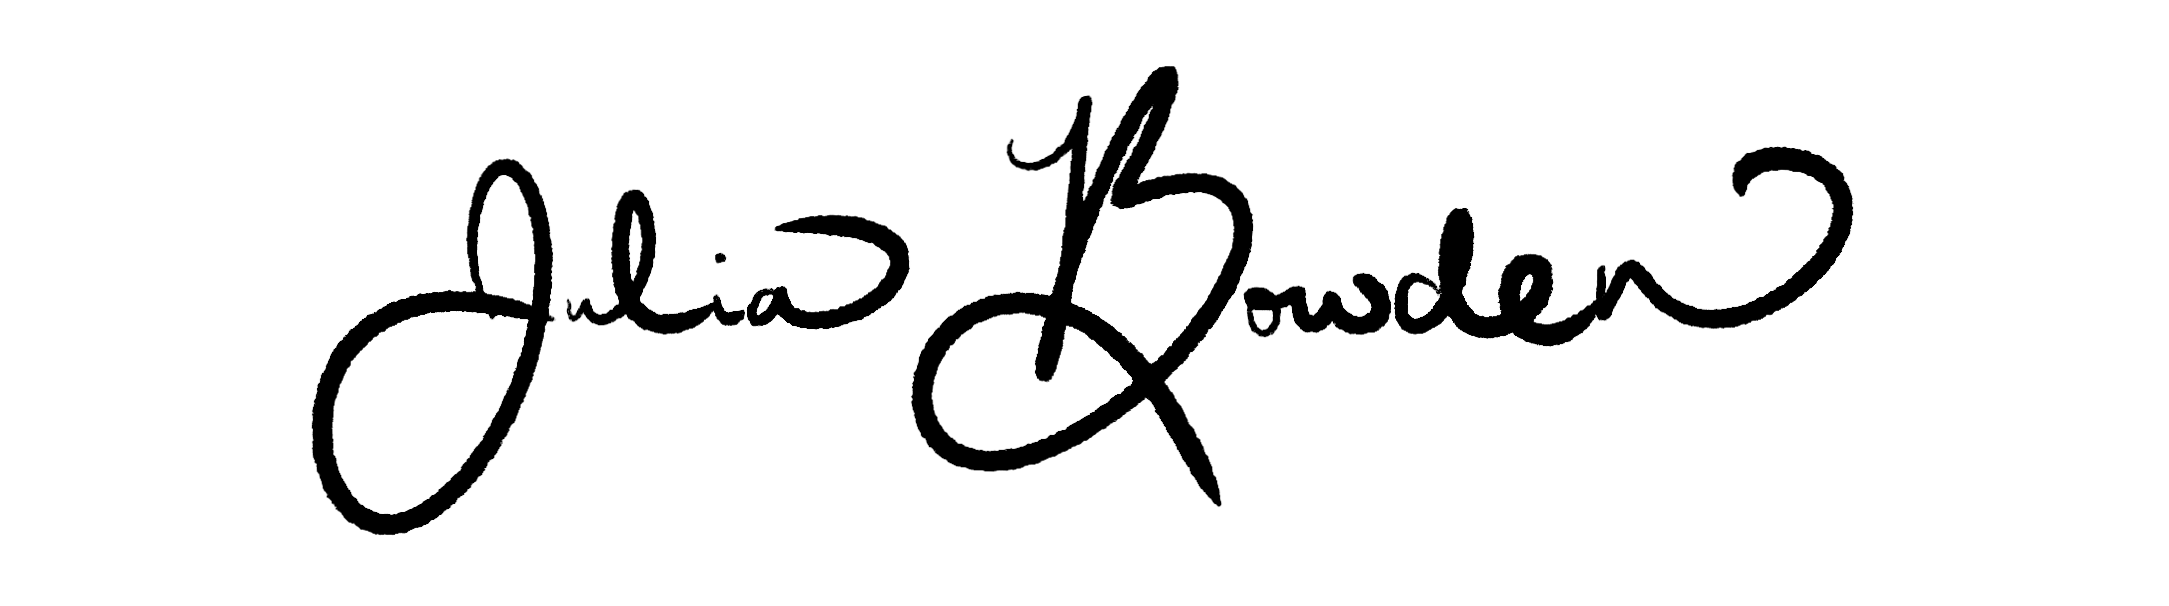 Julia Bowden